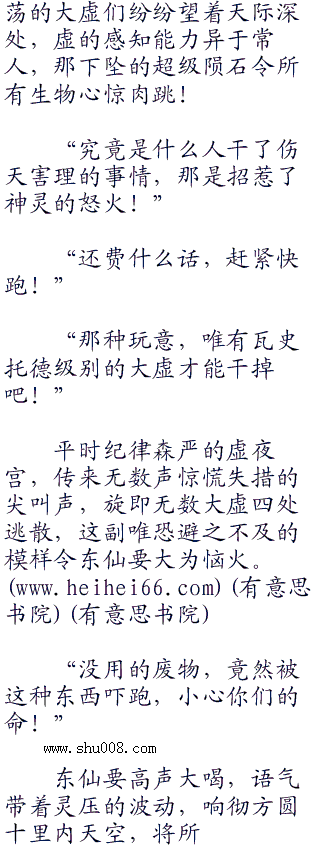 荡的大虚们纷纷望着天际深
处，虚的感知能力异于常
人，那下坠的超级陨石令所
有生物心惊肉跳！
“究竟是什么人干了伤
天害理的事情，那是招惹了
神灵的怒火！”
“还费什么话，赶紧快
跑！”
“那种玩意，唯有瓦史
托德级别的大虚才能干掉
吧！”
平时纪律森严的虚夜
宫，传来无数声惊慌失措的
尖叫声，旋即无数大虚四处
逃散，这副唯恐避之不及的
模样令东仙要大为恼火。
(www.heihei66.com)(有意思
书院)(有意思书院)
“没用的废物，竟然被
这种东西吓跑，小心你们的
命！”
www.shu008.com
东仙要高声大喝，语气
带着灵压的波动，响彻方圆
十里内天空，将所